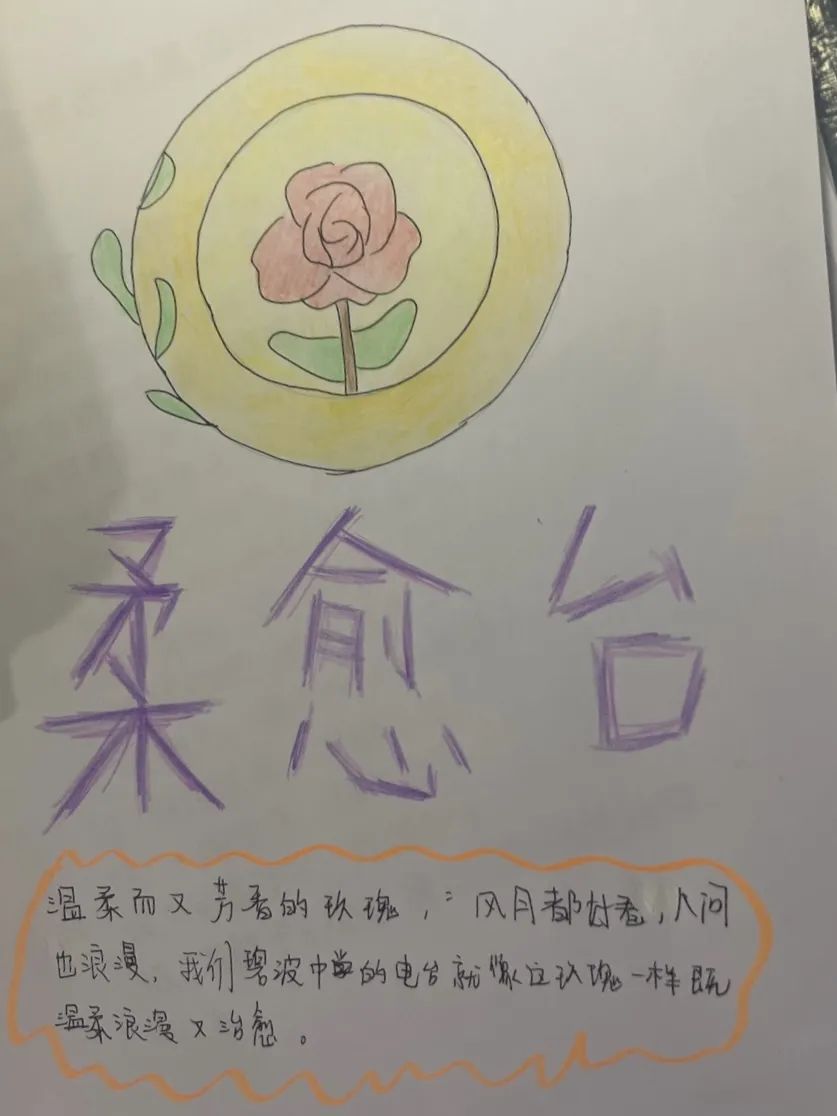 柔愈台
温柔而又芳香的玫瑰，风月都好看，人间
也浪漫，我们碧波中学的电台就像这玫瑰一样既
温柔浪漫又治愈。